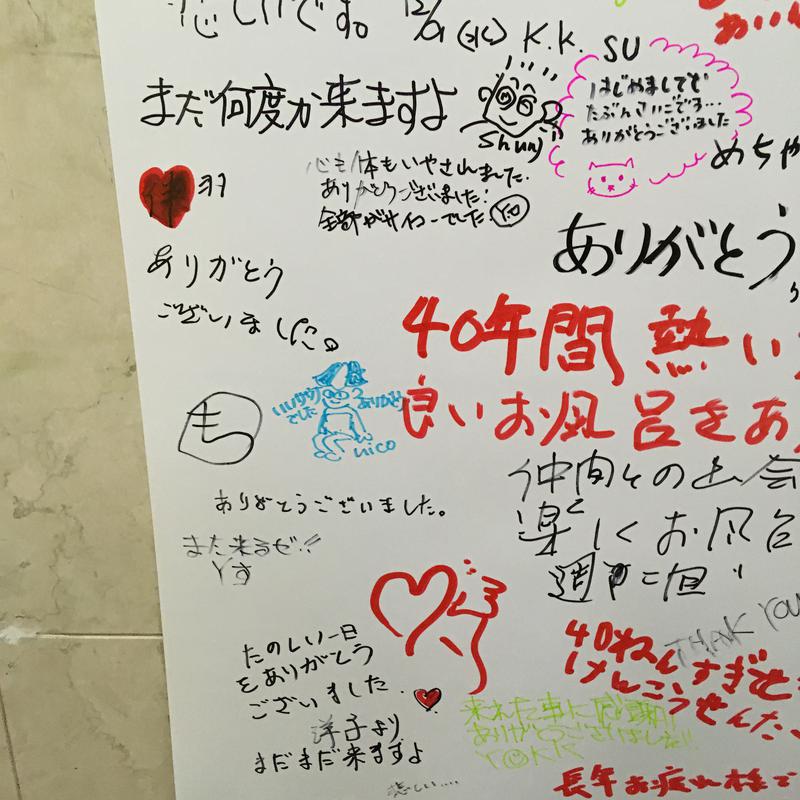 悲しいです。 12/01(水) K.K.
SU
まだ何度か来ますよ
Shunj
はじめましてで
たぶんさいごです…
ありがとうございました
めちゃ
心も体もいやされました。
ありがとうございました!
全部がサイコーでした。Y.O
ありがとう
ございました。
ありがとう
40年間 熱い
良いお風呂をあ
いいサウナ
でした
ありがとう
nico
も
仲間との出会
楽しくお風呂
週に
ありがとうございました。
また来るぜ!!
Yす
THANK YOU
40ねん すぎせ
けんこうせんたー
たのしい一日
をありがとう
ございました
洋子より
まだまだ来ますよ
来れた事に感謝!
ありがとうございました!!
長年お疲れ様で
悲しい....